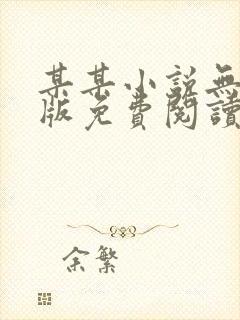 某某小說無
版免費閱讀
余繁